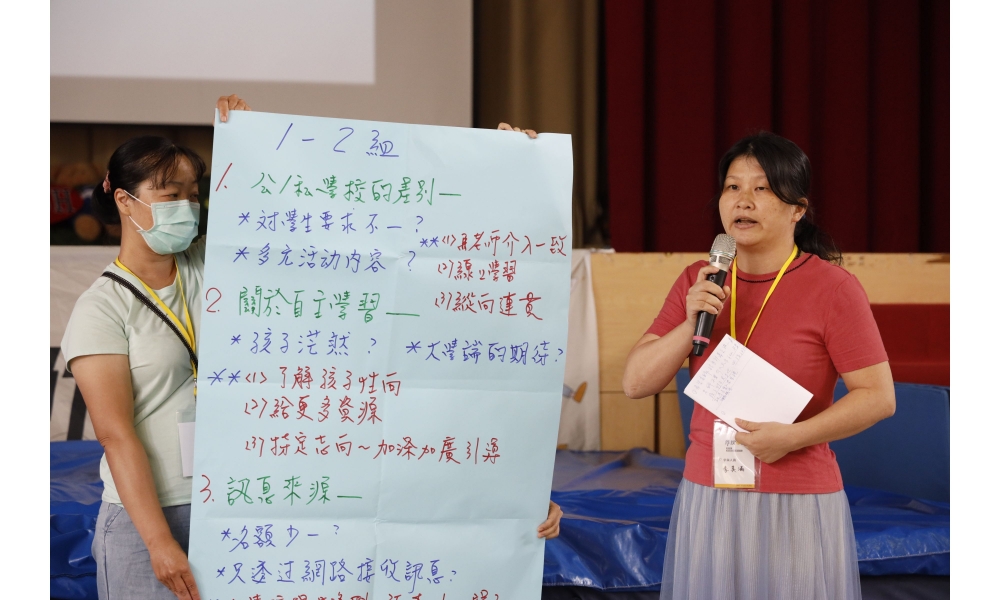 1-2組
1. 公/私學校的差別—
*对學生要求不一?
*多元活动內容?
**(1)再老师介入一致
(2)線上學習
(3)縱向連貫
2. 關於自主學習—
*孩子茫然?
*大學端的期待?
**(1)了解孩子性向
(2)給更多資源
(3)特定志向~加深加廣引導
3. 訊息來源—
*名額少一?
*只透过網路接收訊息?